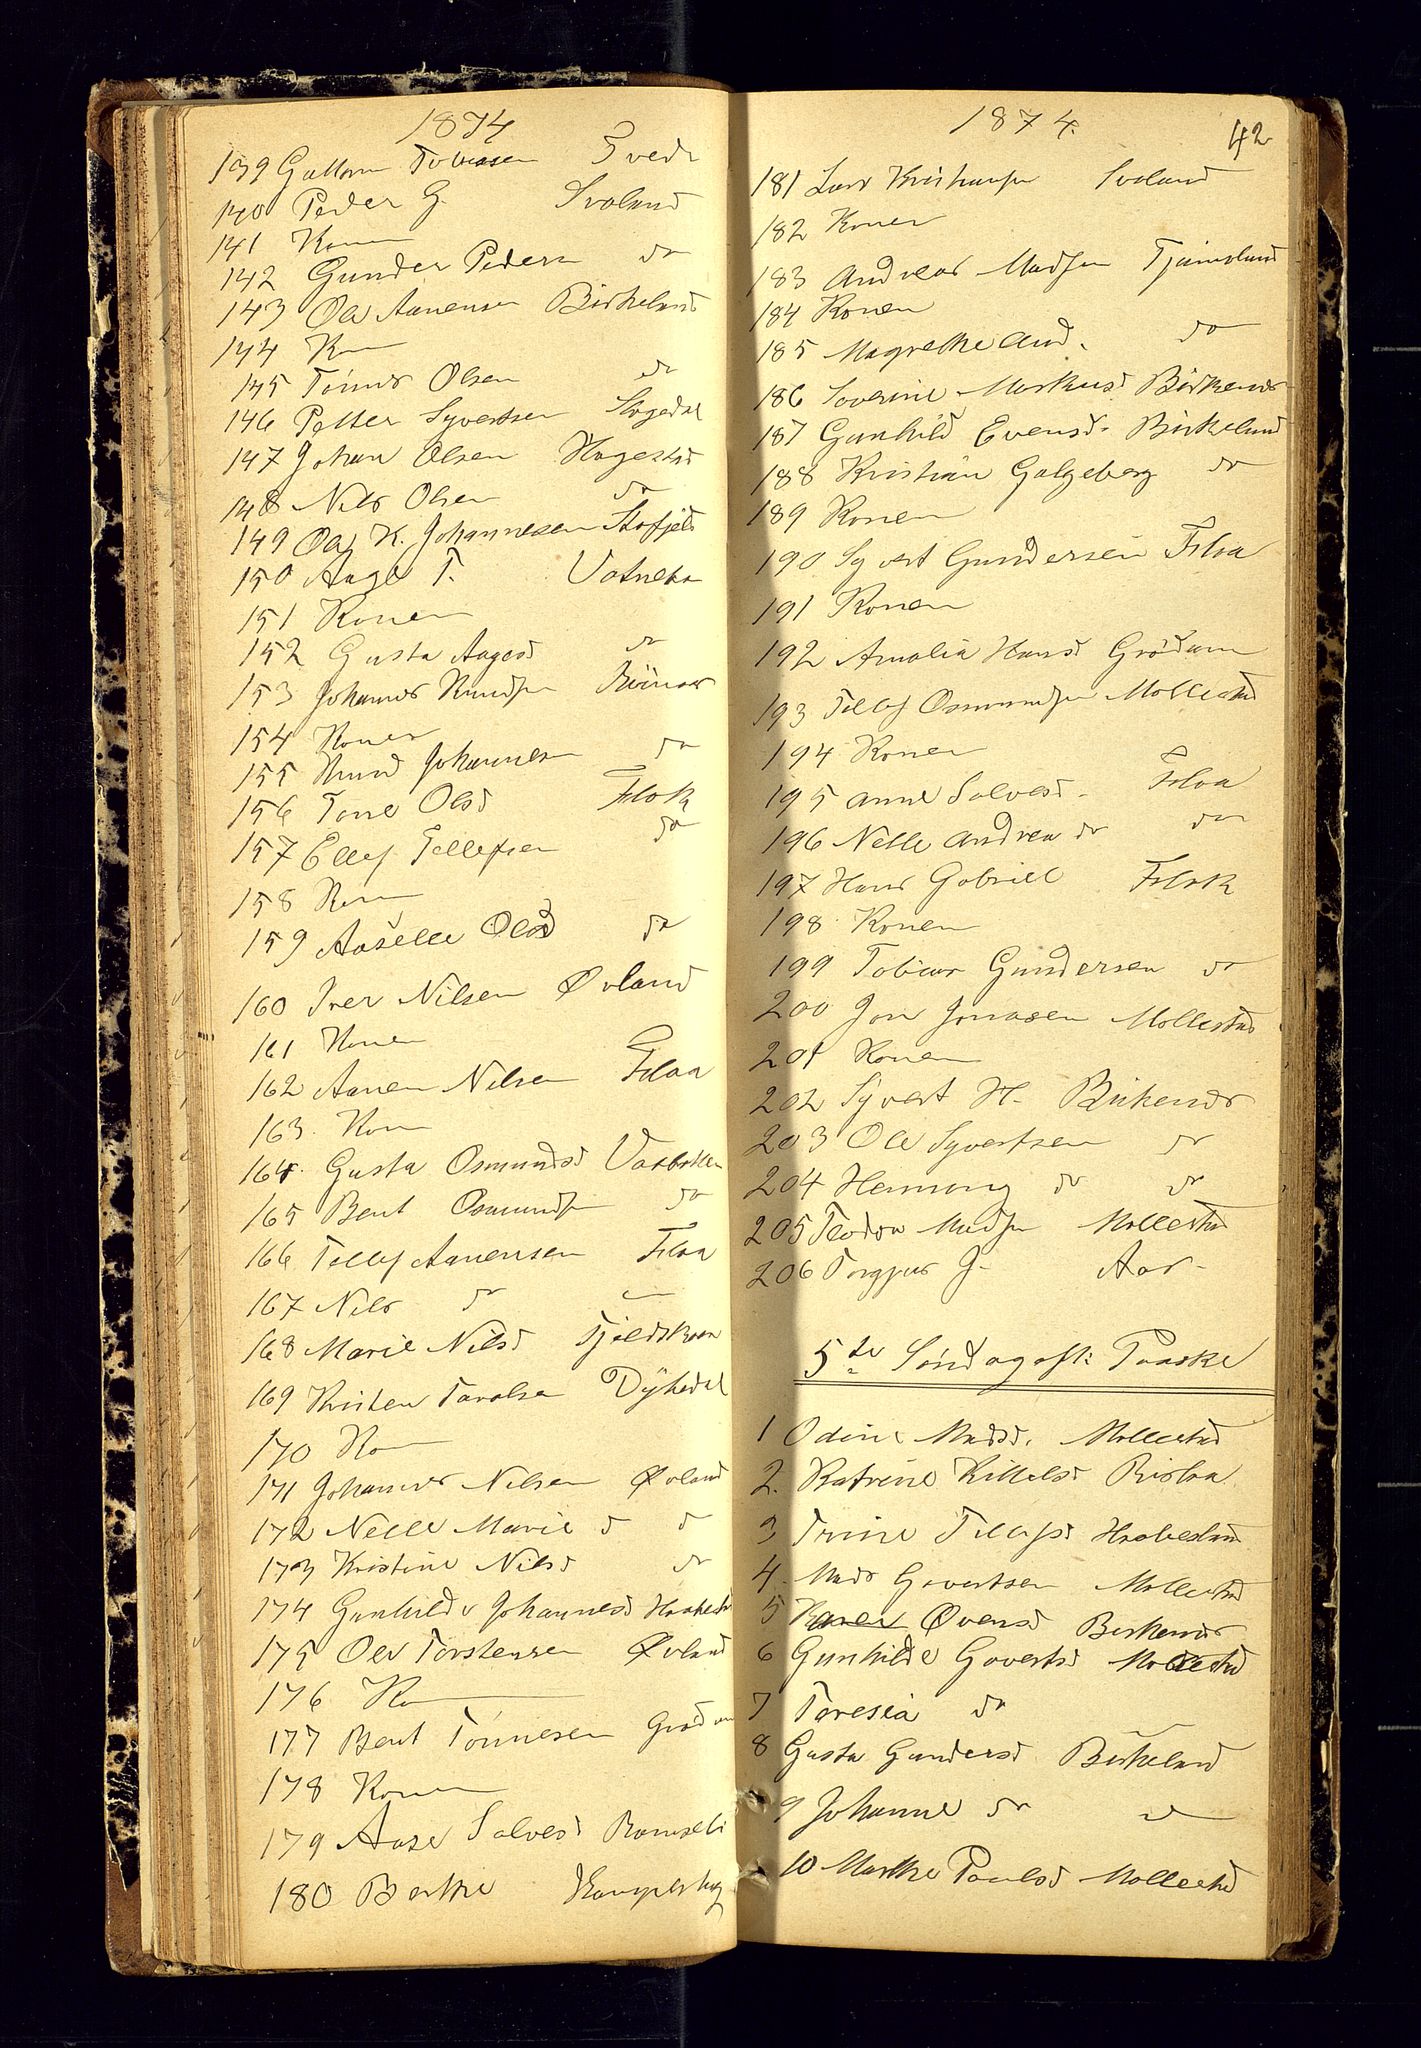 1874
139 Guttorm Tobiassen Tved
140 Peder G. Svaland
141 Konen
142 Gunder Peders do
143 Ole Aanensen Birkeland
144 Kon
145 Tønnes Olsen do
146 Petter Syvertsen
147 Johan Olsen Hagestad
148 Nils Olsen do
149 Ole K. Johannesen
150 Aage T. Vatneba
151 Konen
152 Gusta Aagesd do
153 Johannes Knudsen
154 Konen
155 Knud Johannesen do
156 Tone Olsd Flak
157 Ellef Tellefsen do
158 Kon
159 Aaselle Olsd do
160 Iver Nilsen Øvland
161 Konen
162 Aanen Nilsen Flaa
163 Kon
164 Gusta Osmundsd
165 Bent Osmundsen do
166 Tellef Aanensen Flaa
167 Nils do
168 Marie Nilsd
169 Kristen Tarolsen Dyhedal
170 Kon
171 Johannes Nilsen Øvland
172 Nelle Marie d do
173 Kristine Nilsd do
174 Gunhilde Johannesd
175 Ole Torstensen Øvland
176 Kon
177 Bent Tønnesen
178 Konen
179 Aase Salvesd
180 Berthe
1874.
42
181 Lars Kristiansen Svaland
182 Konen
183 Andreas Madsen
184 Konen
185 Magrethe And. do
186 Severine Markusd Birkenes
187 Gunhild Evensd. Birkeland
188 Kristian Galgeberg do
189 Konen
190 Syvert Gundersen Flaa
191 Konen
192 Amalia Hansd Grødum
193 Tellef Osmundsen Mollestad
194 Konen
195 Anne Salvesd. Flaa
196 Nelle Andrea do do
197 Hans Gabriel Flak
198 Konen
199 Tobias Gundersen do
200 Jon Jonasen Mollestad
201 Konen
202 Syvert H. Birkenes
203 Ole Syvertsen do
204 Henning do do
205 Madsen Mollestad
206 Torgjus J. Aas
5te Søndag eft: Paaske
1 Odine Madsd. Mollestad
2. Katrine Kittelsd Risløa
3 Trine Tellefsd
4 Mads Govertsen Mollestad
5 Karen Øvensd Berkenes
6 Gunhilde Govertsd Mollestad
7 Teresia do
8 Gusta Gundersd Birkeland
9 Johanne do do
10 Marthe Paulsd Mollestad